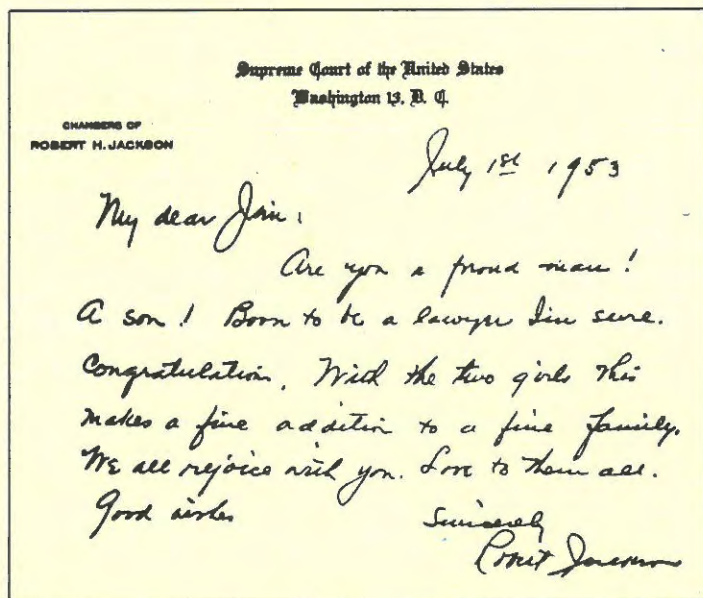 Supreme Court of the United States
Washington 13, D. C.
CHAMBERS OF
ROBERT H. JACKSON
July 1st 1953
My dear Jim:
Are you a proud man!
A son! Born to be a lawyer I'm sure.
Congratulation. With the two girls this
makes a fine addition to a fine family.
We all rejoice with you. Love to them all.
Good wishes
Sincerely
Robert Jackson